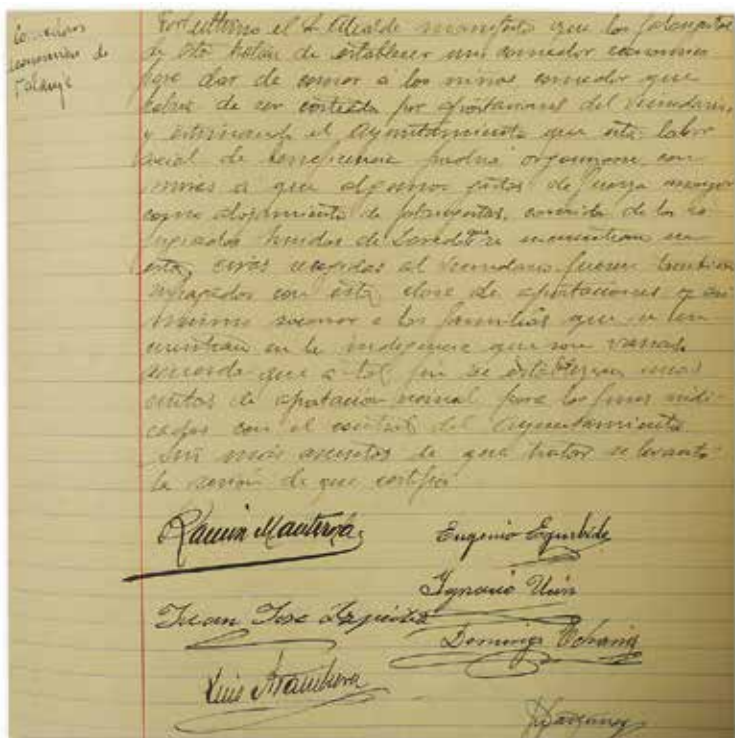 Comedores
economicos de
Falange
Por ultimo el Sr Alcalde manifestó que los falangistas
de Sto habian de establecer un comedor economico
para dar de comer á los niños comedor que
habria de ser costeado por aportaciones del vecindario
y estimando el Ayuntamiento que esta labor
social de beneficencia podria organizarse con
miras a que algunos gastos de fuerza mayor
como alojamiento de falangistas, comida de los re
fugiados huidos de se encuentran en
esta, recogidas al vecindario fueran tambien
con esta clase de aportaciones y asi
mismo socorrer a las familias que se en
cuentran en la indigencia que son varias
acuerda que a tal fin se establezcan unas
cuotas de aportacion para los fines indi
cados con el control del Ayuntamiento
Sin más asuntos de que tratar se levantó
la sesión de que certifico
Ramón Manterola
Eugenio Egurbide
Ignacio
Juan José
Domingo
Luis Aramburu